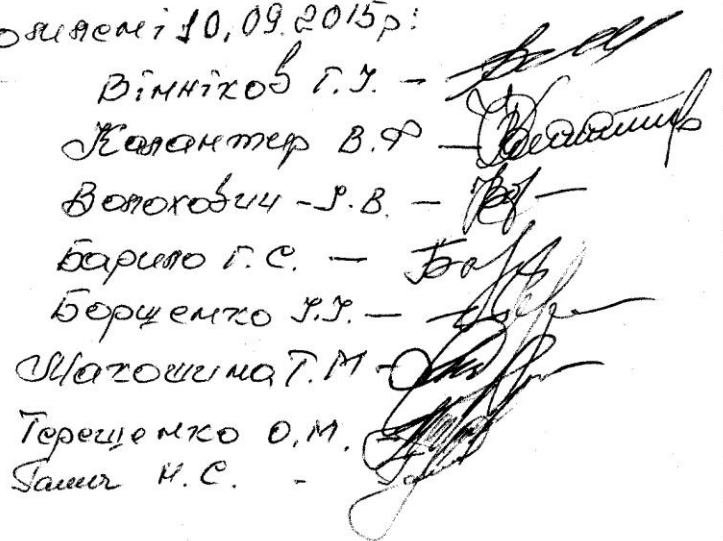 10.09.2015р:
Вінніков Г.І. -
Калантер В.Ф -
Волохович - І.В. -
Барило Г.С. -
Борщенко І.І. -
Макошина Т.М -
Терещенко О.М. -
Галич Н.С. -